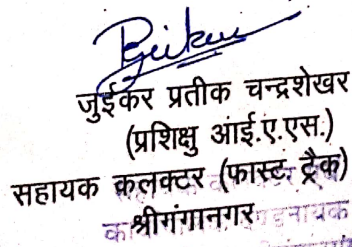 जुईकर प्रतीक चन्द्रशेखर
(प्रशिक्षु आई.ए.एस.)
सहायक कलक्टर (फास्ट ट्रैक)
श्रीगंगानगर